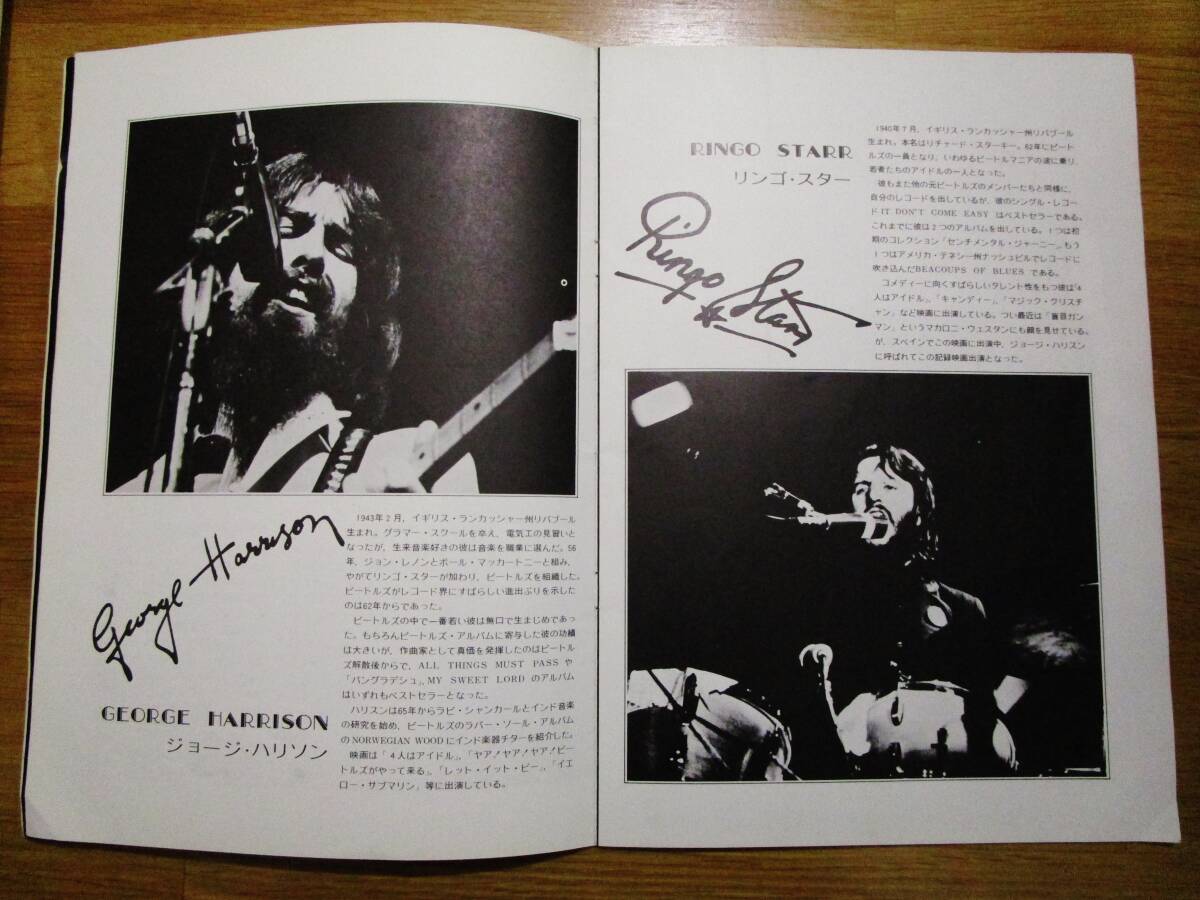 George Harrison
GEORGE HARRISON
ジョージ・ハリソン
1943年2月，イギリス・ランカッシャー州リバプール
生まれ。グラマー・スクールを卒え，電気工の見習いと
なったが，生来音楽好きの彼は音楽を職業に選んだ。56
年，ジョン・レノンとポール・マッカートニーと組み，
やがてリンゴ・スターが加わり，ビートルズを組織した。
ビートルズがレコード界にすばらしい進出ぶりを示した
のは62年からであった。
ビートルズの中で一番若い彼は無口で生まじめであっ
た。もちろんビートルズ・アルバムに寄与した彼の功績
は大きいが，作曲家として真価を発揮したのはビートル
ズ解散後からで，ALL THINGS MUST PASSや
「バングラデシュ」，MY SWEET LORDのアルバム
はいずれもベストセラーとなった。
ハリスンは65年からラビ・シャンカールとインド音楽
の研究を始め，ビートルズのラバー・ソール・アルバム
のNORWEGIAN WOODにインド楽器チターを紹介した。
映画は「4人はアイドル」，「ヤア！ヤア！ヤア！ビー
トルズがやって来る」，「レット・イット・ビー」，「イエ
ロー・サブマリン」等に出演している。
RINGO STARR
リンゴ・スター
Ringo Starr
1940年7月，イギリス・ランカッシャー州リバプール
生まれ。本名はリチャード・スターキー。62年にビート
ルズの一員となり，いわゆるビートルマニアの波に乗り，
若者たちのアイドルの一人となった。
彼もまた他の元ビートルズのメンバーたちと同様に，
自分のレコードを出しているが，彼のシングル・レコー
ドIT DON'T COME EASYはベストセラーである。
これまでに彼は2つのアルバムを出している。1つは初
期のコレクション「センチメンタル・ジャーニー」，もう
1つはアメリカ・テネシー州ナッシュビルでレコードに
吹き込んだBEACOUPS OF BLUESである。
コメディーに向くすばらしいタレント性をもつ彼は「4
人はアイドル」，「キャンディー」，「マジック・クリスチ
ャン」など映画に出演している。つい最近は「盲目ガン
マン」というマカロニ・ウェスタンにも顔を見せている。
が，スペインでこの映画に出演中，ジョージ・ハリスン
に呼ばれてこの記録映画出演となった。